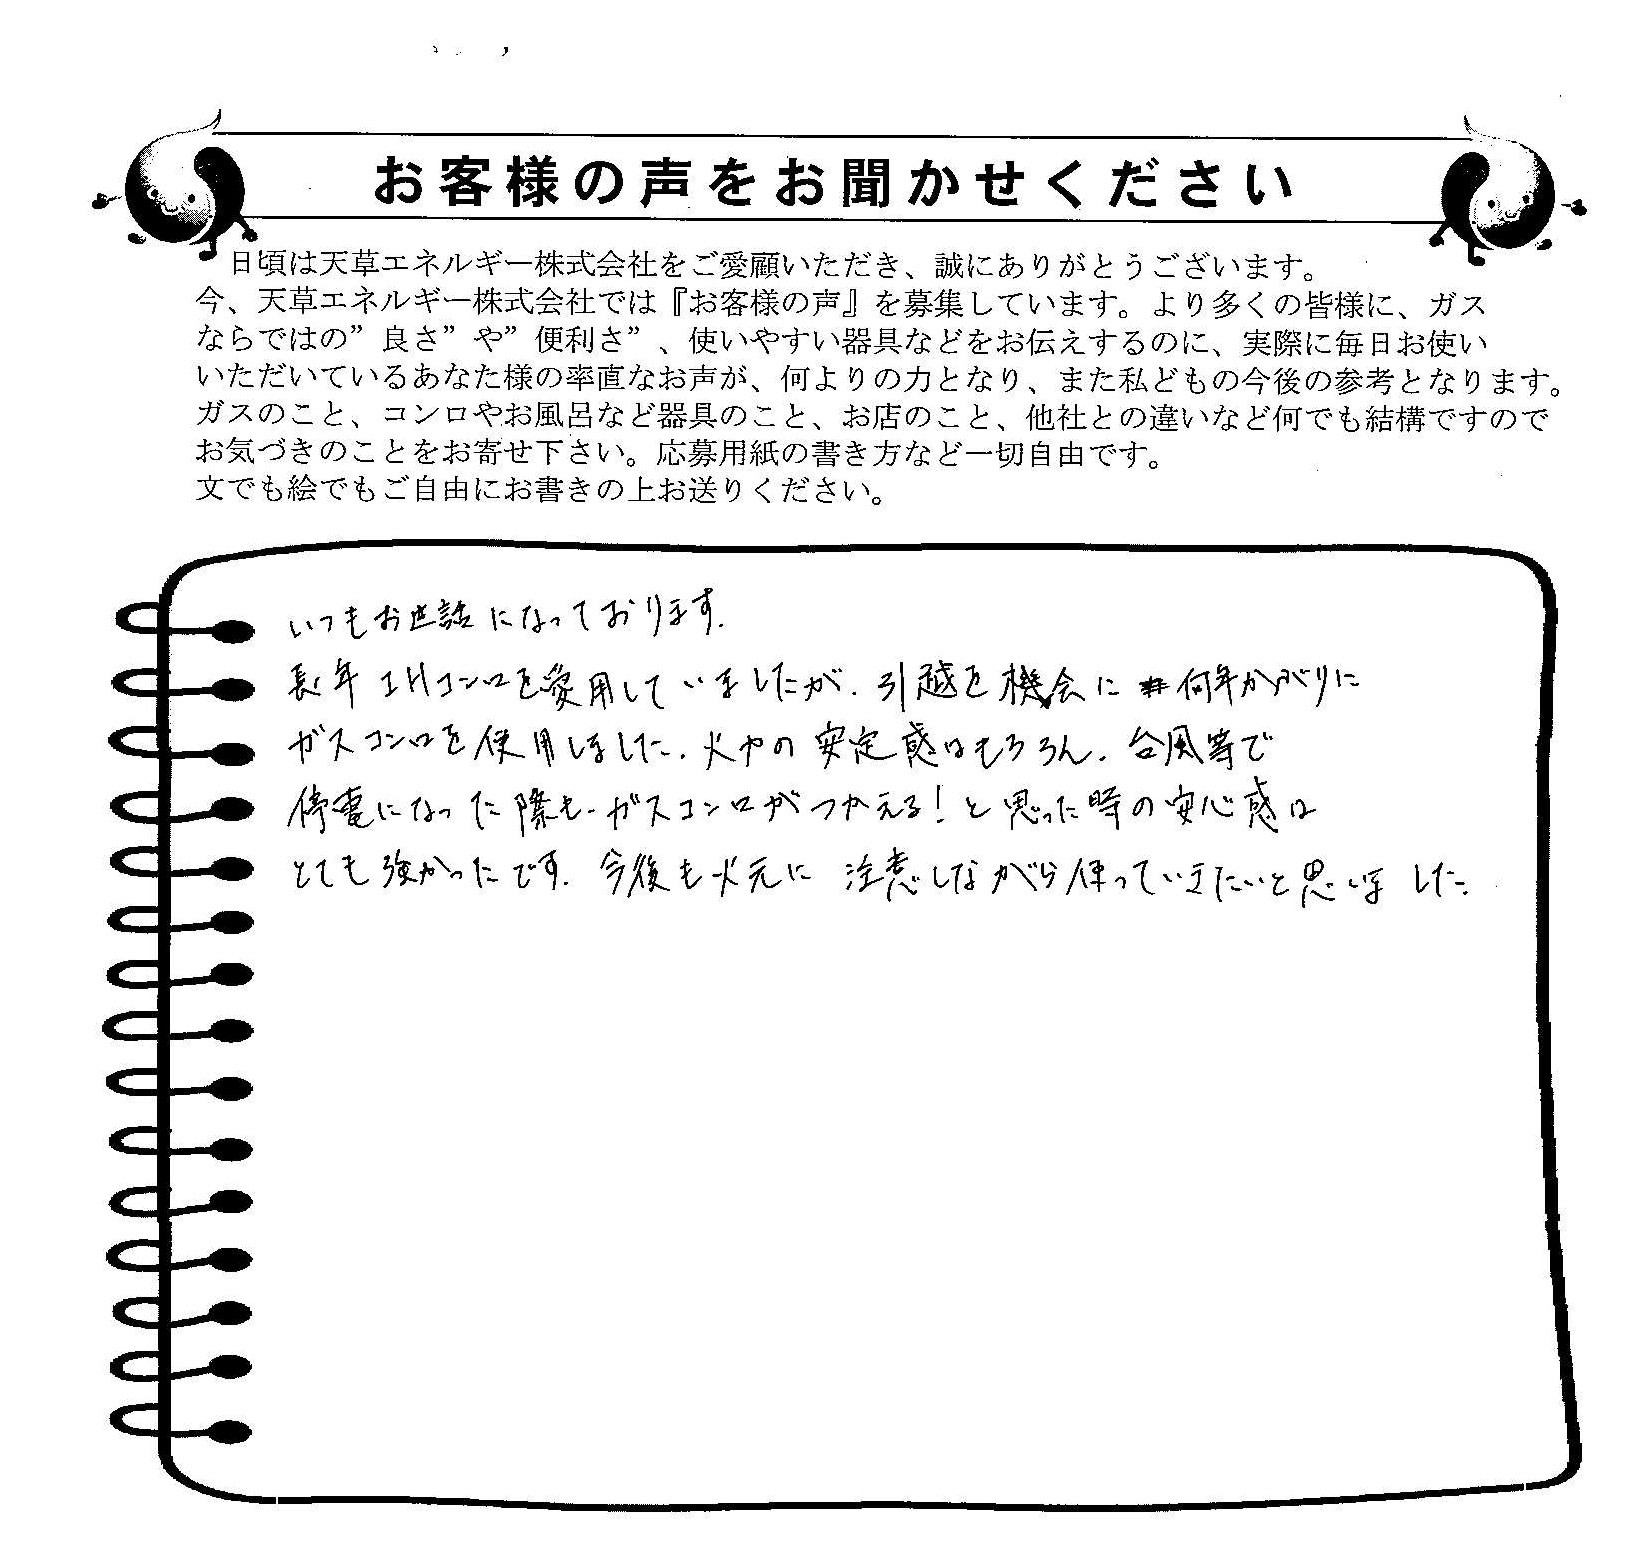 お客様の声をお聞かせください
日頃は天草エネルギー株式会社をご愛顧いただき、誠にありがとうございます。
今、天草エネルギー株式会社では『お客様の声』を募集しています。より多くの皆様に、ガス
ならではの”良さ”や”便利さ”、使いやすい器具などをお伝えするのに、実際に毎日お使い
いただいているあなた様の率直なお声が、何よりの力となり、また私どもの今後の参考となります。
ガスのこと、コンロやお風呂など器具のこと、お店のこと、他社との違いなど何でも結構ですので
お気づきのことをお寄せ下さい。応募用紙の書き方など一切自由です。
文でも絵でもご自由にお書きの上お送りください。
いつもお世話になっております.
長年 IHコンロを愛用していましたが. 引越を機会に 何年かがりに
ガスコンロを使用しました. 火力の安定感はもちろん. 台風等で
停電になった際も. ガスコンロがつかえる!と思った時の安心感は
とても強かったです. 今後も火元に注意しながら使っていきたいと思いました.